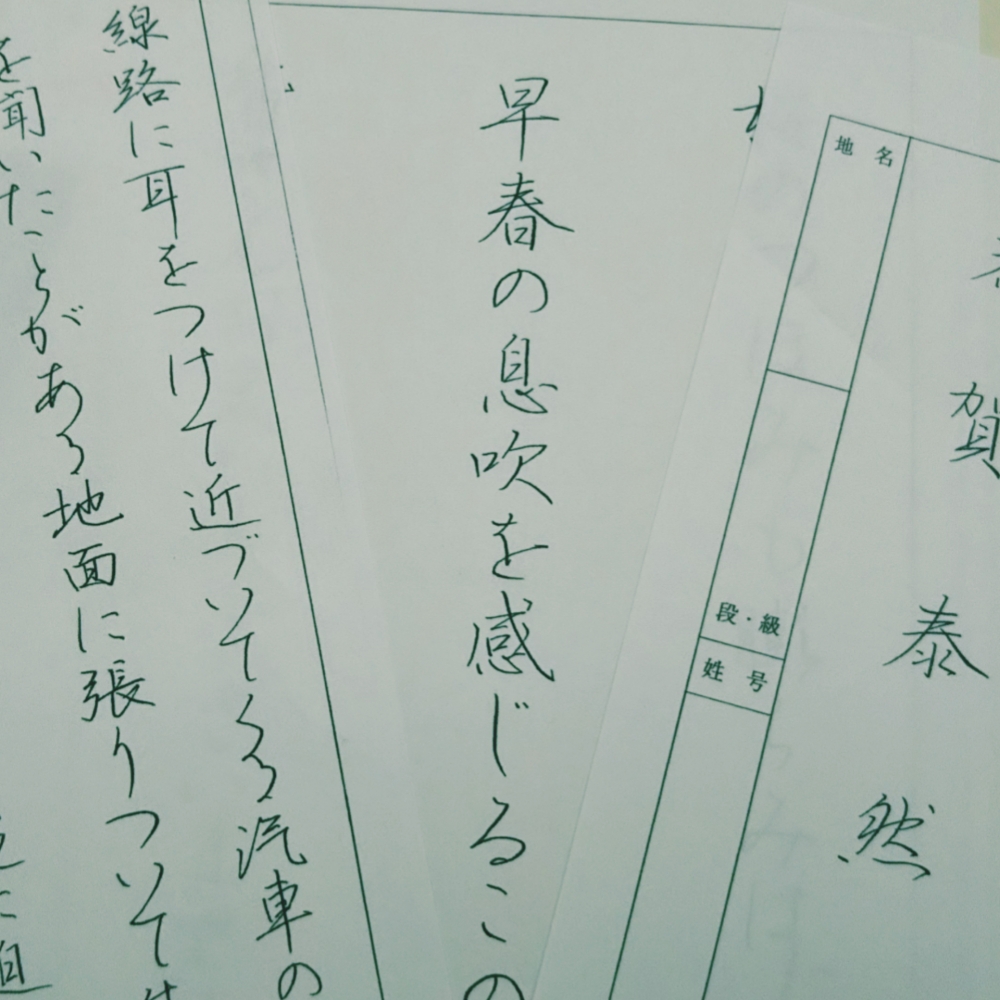 賀
泰
然
地名
段・級
姓号
早春の息吹を感じるこの
線路に耳をつけて近づいてくる汽車の
を聞いたことがある地面に張りついて